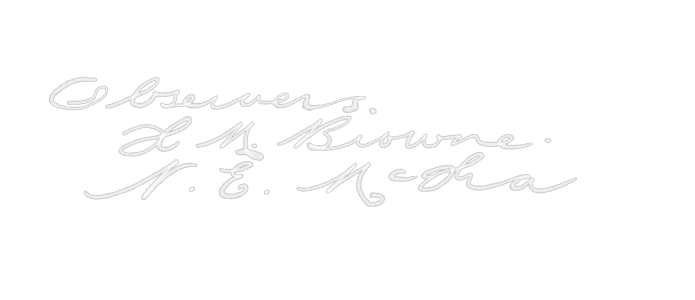 Observers.
H. M. Browne.
N. E. McGha